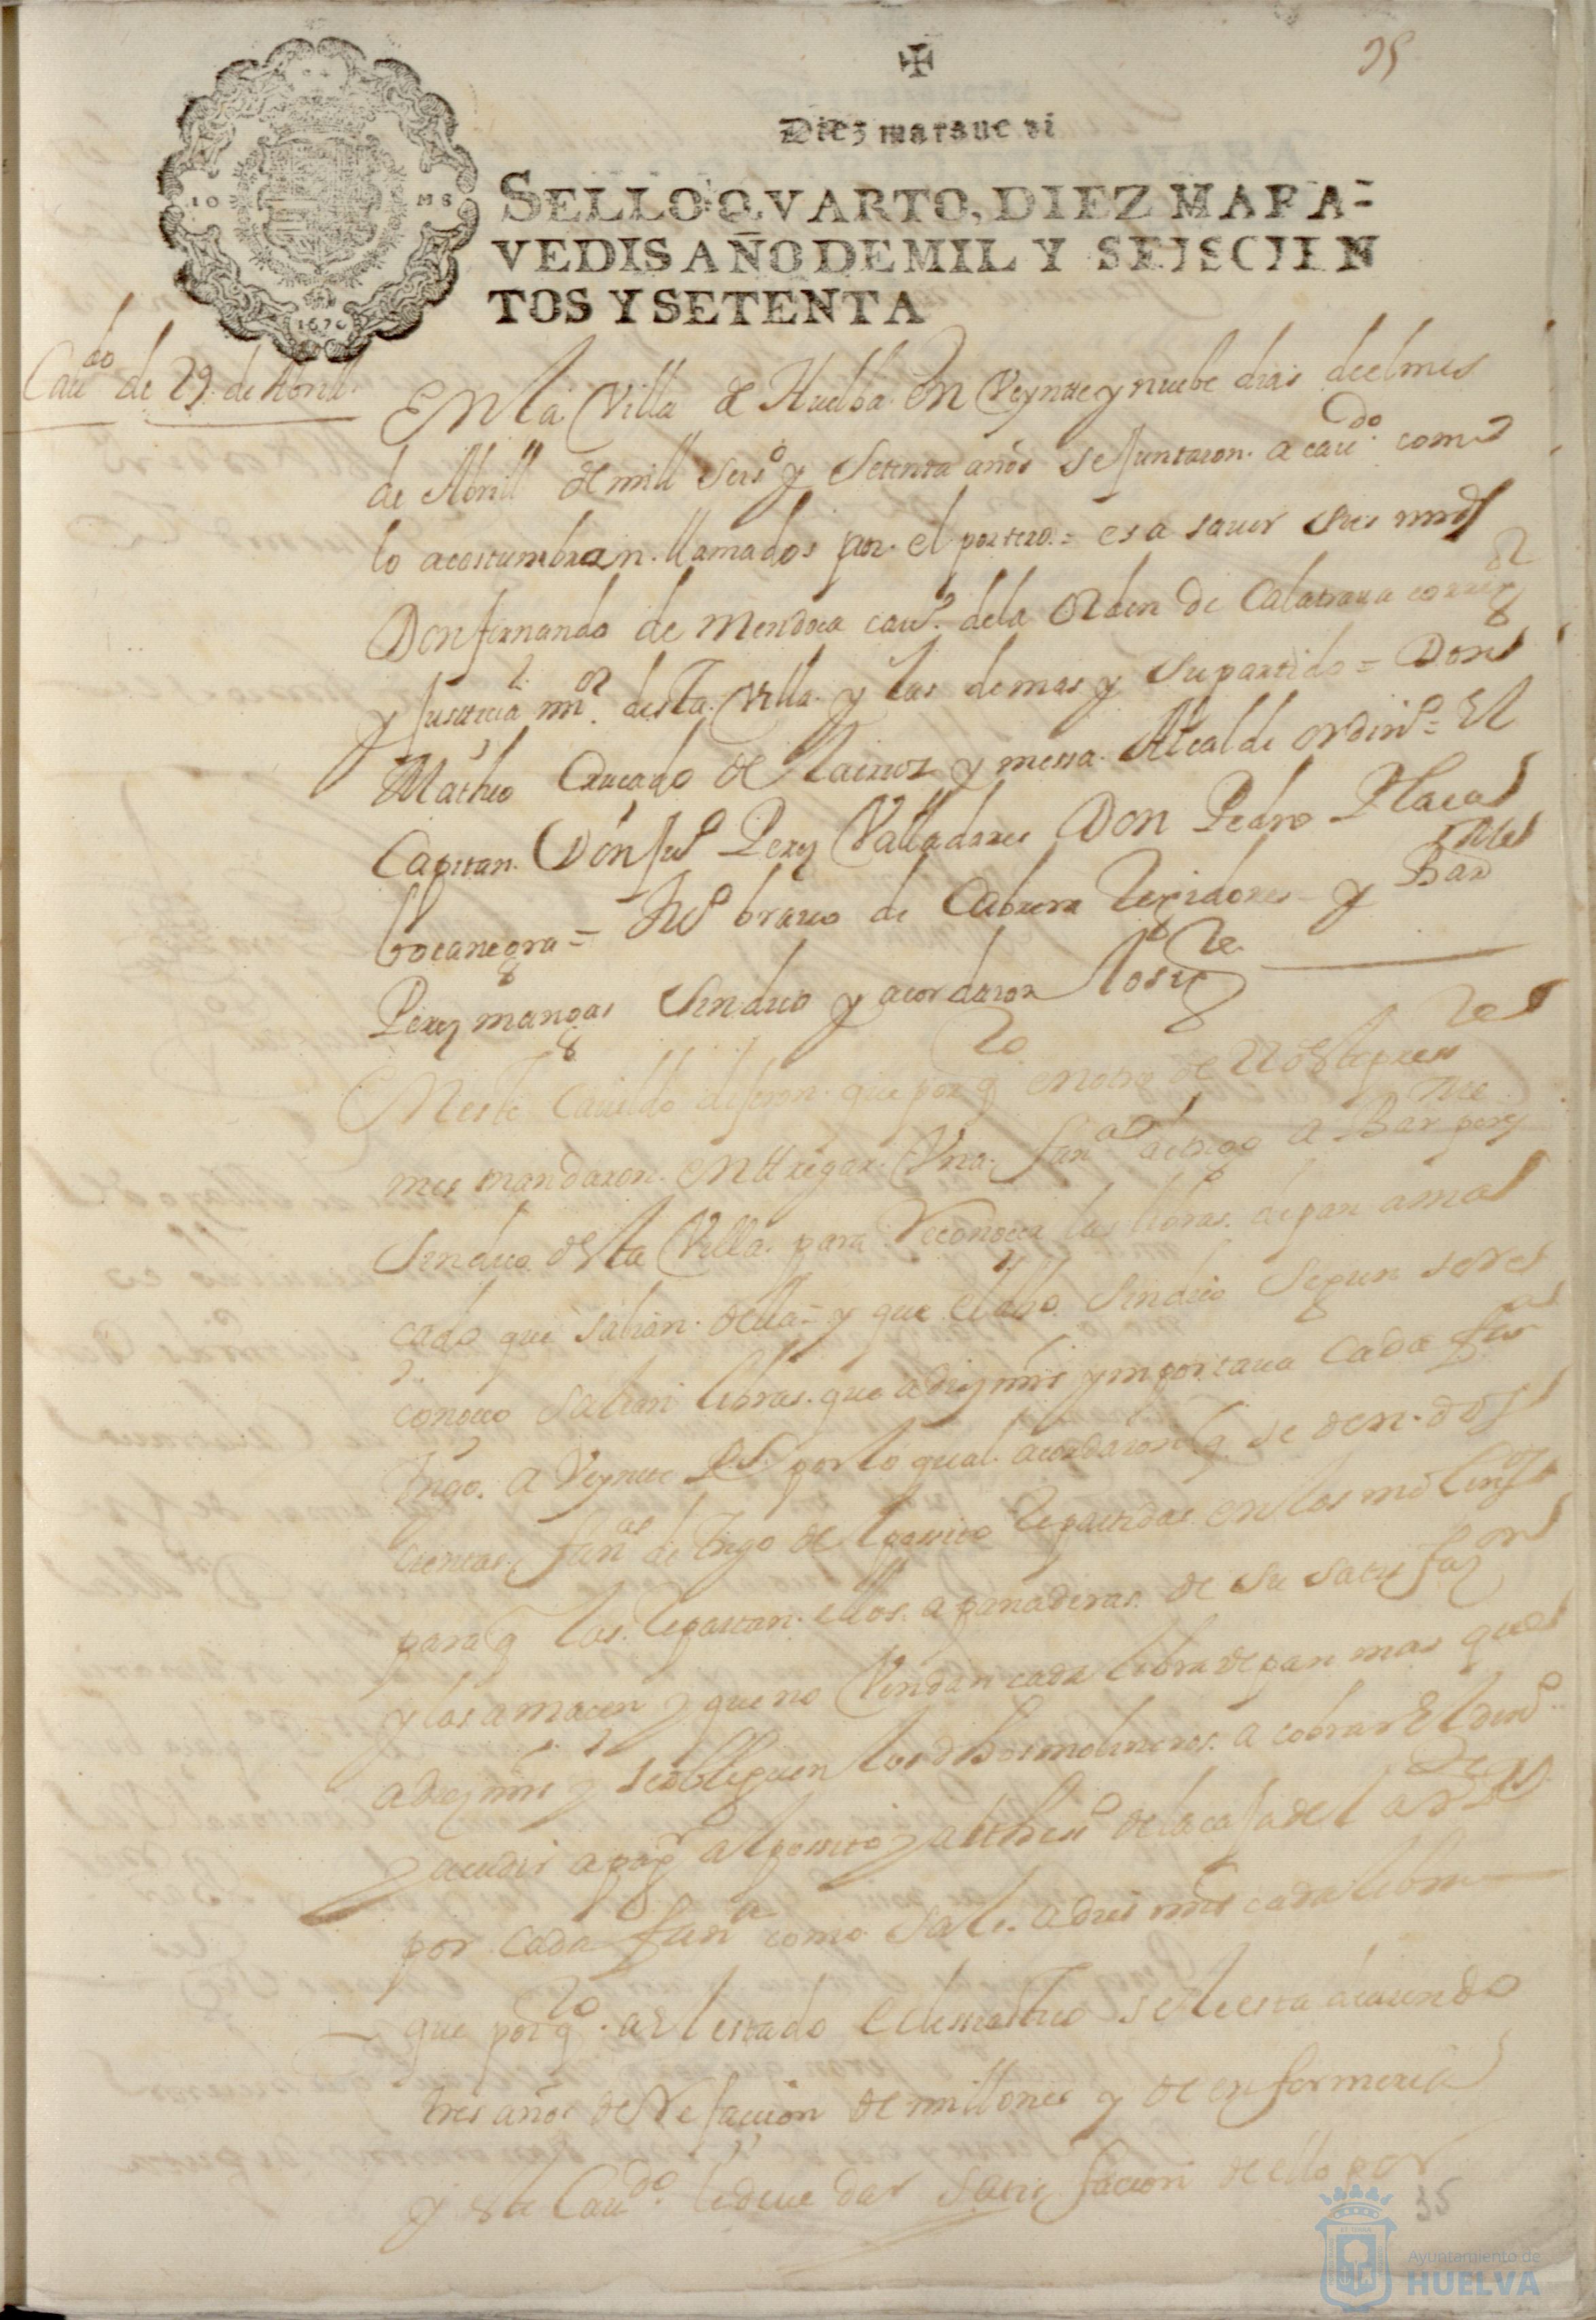 35
Diez marauedi
SELLO QVARTO, DIEZ MARA-
VEDIS AÑO DE MIL Y SEISCIEN
TOS Y SETENTA
10 MS
1670
Caudo de 29 de Abrill
En la Villa de Huelba en Veynte y nuebe dias deel mes
de Abrill de mill seiso y setenta años se juntaron a caudo como
lo acostumbran llamados por el portero = es a sauer sus mrds
Don fernando de Mendoca cauo de la orden de Calatraua corregor
y Justicia mor desta Villa y las demas y su partido = Don
Matheo Quecado de y messa Alcalde ordino = El
Capitan Don Juo Perez Valladares Don Pedro Placa
bocanegra = Juo brauo de Cabrera Regidores y Barme
Perez mangas Sindico y acordaron lo sigte
En este Cauildo dijeron que por qto en otro de 22 deste presente
mes mandaron entregar Vna fana de trigo a Barme perez
Sindico desta Villa para Reconocer las libras de pan ama
cado que salian della = y que el dho Sindico segun se re
conocio salian libras que a diez mrs ymportaua cada fana
trigo a Veynte Rs por lo qual acordaron q se den dos
cientas fanas de trigo del posito repartidas en los molinos
para q los repartan ellos a panaderas de su satisfazon
y los amacen y que no Vendan cada libra de pan mas que
a diez mrs y se obliguen los dhos molineros a cobrar El dino
y acudir a pagar al posito y al thesro de la casa del
por cada fana como sale a dies mrs cada libra
que por qto al estado eclesiastico se le esta deuiendo
tres años de Refaccion de millones y de enfermeria
y este Caudo le deue dar satisfacion de ello por
35
Ayuntamiento de
HUELVA